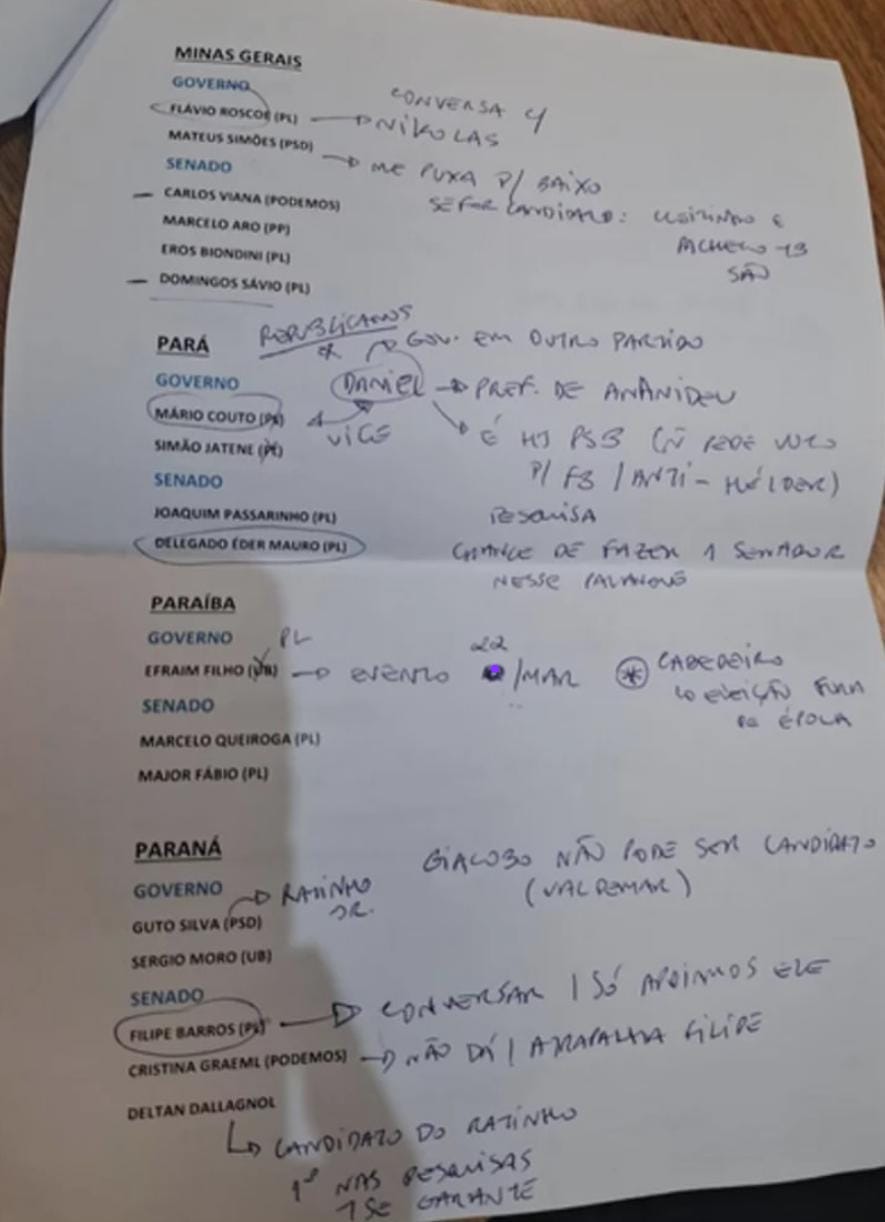 MINAS GERAIS
GOVERNO
CONVERSA C/
FLÁVIO ROSCOE (PL) → NIKOLAS
MATEUS SIMÕES (PSD) → ME PUXA P/ BAIXO
SENADO
SE FOR CANDIDATO: E
— CARLOS VIANA (PODEMOS)
PACHECO 13
MARCELO ARO (PP)
SÃO
EROS BIONDINI (PL)
— DOMINGOS SÁVIO (PL)
REPUBLICANOS
PARÁ
GOV. EM OUTRO PARTIDO
GOVERNO
DANIEL → PREF. DE ANANIDEU
MÁRIO COUTO
VICE
É HJ PSB (Ñ PEDE VOTO
SIMÃO JATENE
P/ FB / ANTI-HÉLDER)
SENADO
JOAQUIM PASSARINHO (PL)
PESQUISA
DELEGADO ÉDER MAURO (PL)
CHANCE DE FAZER 1 SENADOR
NESSE PALANQUE
PARAÍBA
GOVERNO
PL
22
EFRAIM FILHO (UB) → EVENTO /MAR
* CABEDELO
ELEIÇÃO FORA
DE ÉPOCA
SENADO
MARCELO QUEIROGA (PL)
MAJOR FÁBIO (PL)
PARANÁ
GIACOBO NÃO PODE SER CANDIDATO
(VALDEMAR)
GOVERNO
RATINHO
JR.
GUTO SILVA (PSD)
SERGIO MORO (UB)
SENADO
FILIPE BARROS (PL) → CONVERSAR / SÓ APOIAMOS ELE
CRISTINA GRAEML (PODEMOS) → NÃO DÁ / ATRAPALHA FILIPE
DELTAN DALLAGNOL
CANDIDATO DO RATINHO
1º NAS PESQUISAS
SE GARANTE